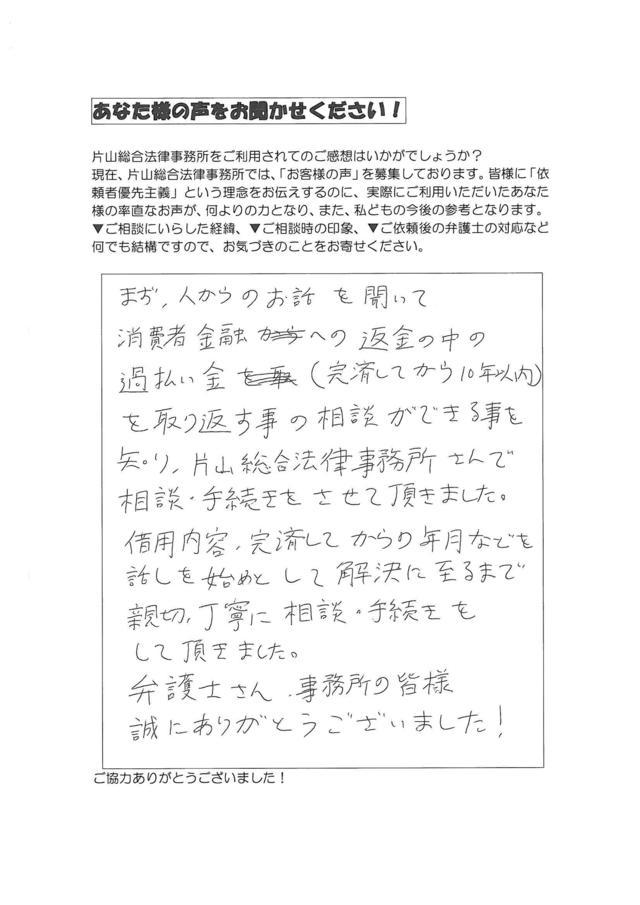 あなた様の声をお聞かせください！
片山総合法律事務所をご利用されてのご感想はいかがでしょうか？
現在、片山総合法律事務所では、「お客様の声」を募集しております。皆様に「依
頼者優先主義」という理念をお伝えするのに、実際にご利用いただいたあなた
様の率直なお声が、何よりの力となり、また、私どもの今後の参考となります。
▼ご相談にいらした経緯、▼ご相談時の印象、▼ご依頼後の弁護士の対応など
何でも結構ですので、お気づきのことをお寄せください。
まず、人からのお話を聞いて
消費者金融への返金の中の
過払い金（完済してから10年以内）
を取り返す事の相談ができる事を
知り、片山総合法律事務所さんで
相談・手続きをさせて頂きました。
借用内容、完済してからの年月などを
話しを始めとして解決に至るまで
親切、丁寧に相談・手続きを
して頂きました。
弁護士さん、事務所の皆様
誠にありがとうございました！
ご協力ありがとうございました！